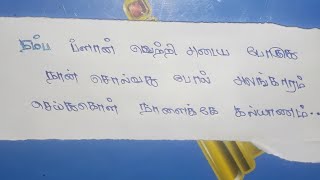 நம்ம ப்ளான் வெற்றி அடைய போகுது
நான் சொல்வது போல் அலங்காரம்
செய்துகொள் நாளைக்கே கல்யாணம்..